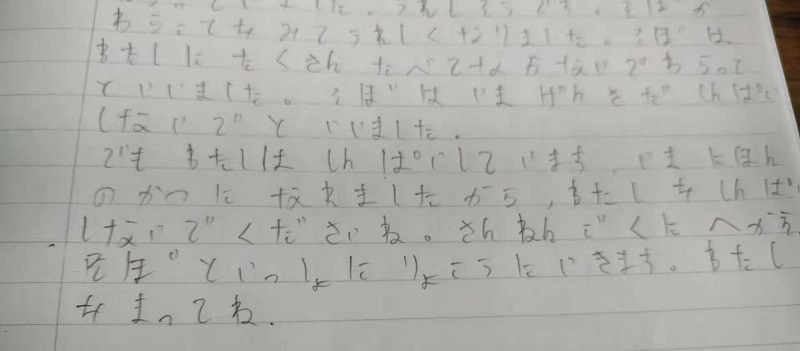 ました。うれしそうです。そぼが
てもみてうれしくなりました。そぼは
わたしにたくさんたべてなかないでわらって
といいました。そぼはいまげんきだしんぱい
しないでといいました.
でもわたしはしんぱいしています。いまにほん
のかつになれましたから,わたしもしんぱ
しないでくださいね。さんねんごくにへかえ
そぼといっしょにりょこうにいきます。わたし
もまってね.